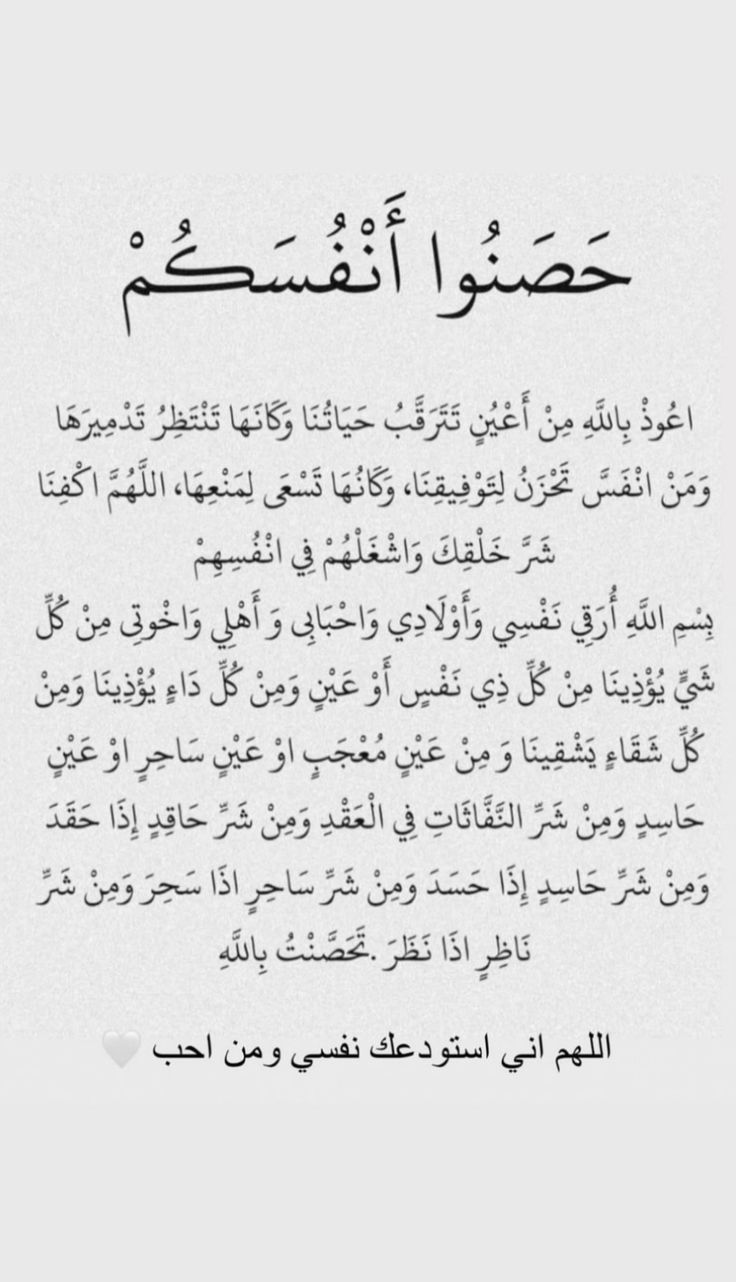 حَصَنُوا أَنْفُسَكُمْ
اعُوذْ بِاللَّهِ مِنْ أَعْيُنٍ تَتَرَقَّبُ حَيَاتُنَا وَكَانَهَا تَنْتَظِرُ تَدْمِيرَهَا
وَمَنْ انْفَسَّ تَحْزَنُ لِتَوْفِيقِنَا، وَكَانُهَا تَسْعَى لِمَنْعِهَا، اللَّهُمَّ اكْفِنَا
شَرَّ خَلْقِكَ وَاشْغَلْهُمْ فِي انْفُسِهِمْ
بِسْمِ اللَّهِ أُرَقِي نَفْسِي وَأَوْلَادِي وَاحْبَابِى وَ أَهْلِي وَاخْوتِى مِنْ كُلِّ
شَيٍّ يُؤْذِينَا مِنْ كُلِّ ذِي نَفْسٍ أَوْ عَيْنٍ وَمِنْ كُلِّ دَاءٍ يُؤْذِينَا وَمِنْ
كُلِّ شَقَاءٍ يَشْقِينَا وَ مِنْ عَيْنٍ مُعْجَبٍ اوْ عَيْنٍ سَاحِرٍ اوْ عَيْنٍ
حَاسِدٍ وَمِنْ شَرِّ النَّفَّاثَاتِ فِي الْعَقْدِ وَمِنْ شَرِّ حَاقِدٍ إِذَا حَقَدَ
وَمِنْ شَرِّ حَاسِدٍ إِذَا حَسَدَ وَمِنْ شَرِّ سَاحِرٍ اذَا سَحِرَ وَمِنْ شَرِّ
نَاظِرٍ اذَا نَظَرَ .تَحَصَّنْتُ بِاللَّهِ
اللهم اني استودعك نفسي ومن احب 🤍